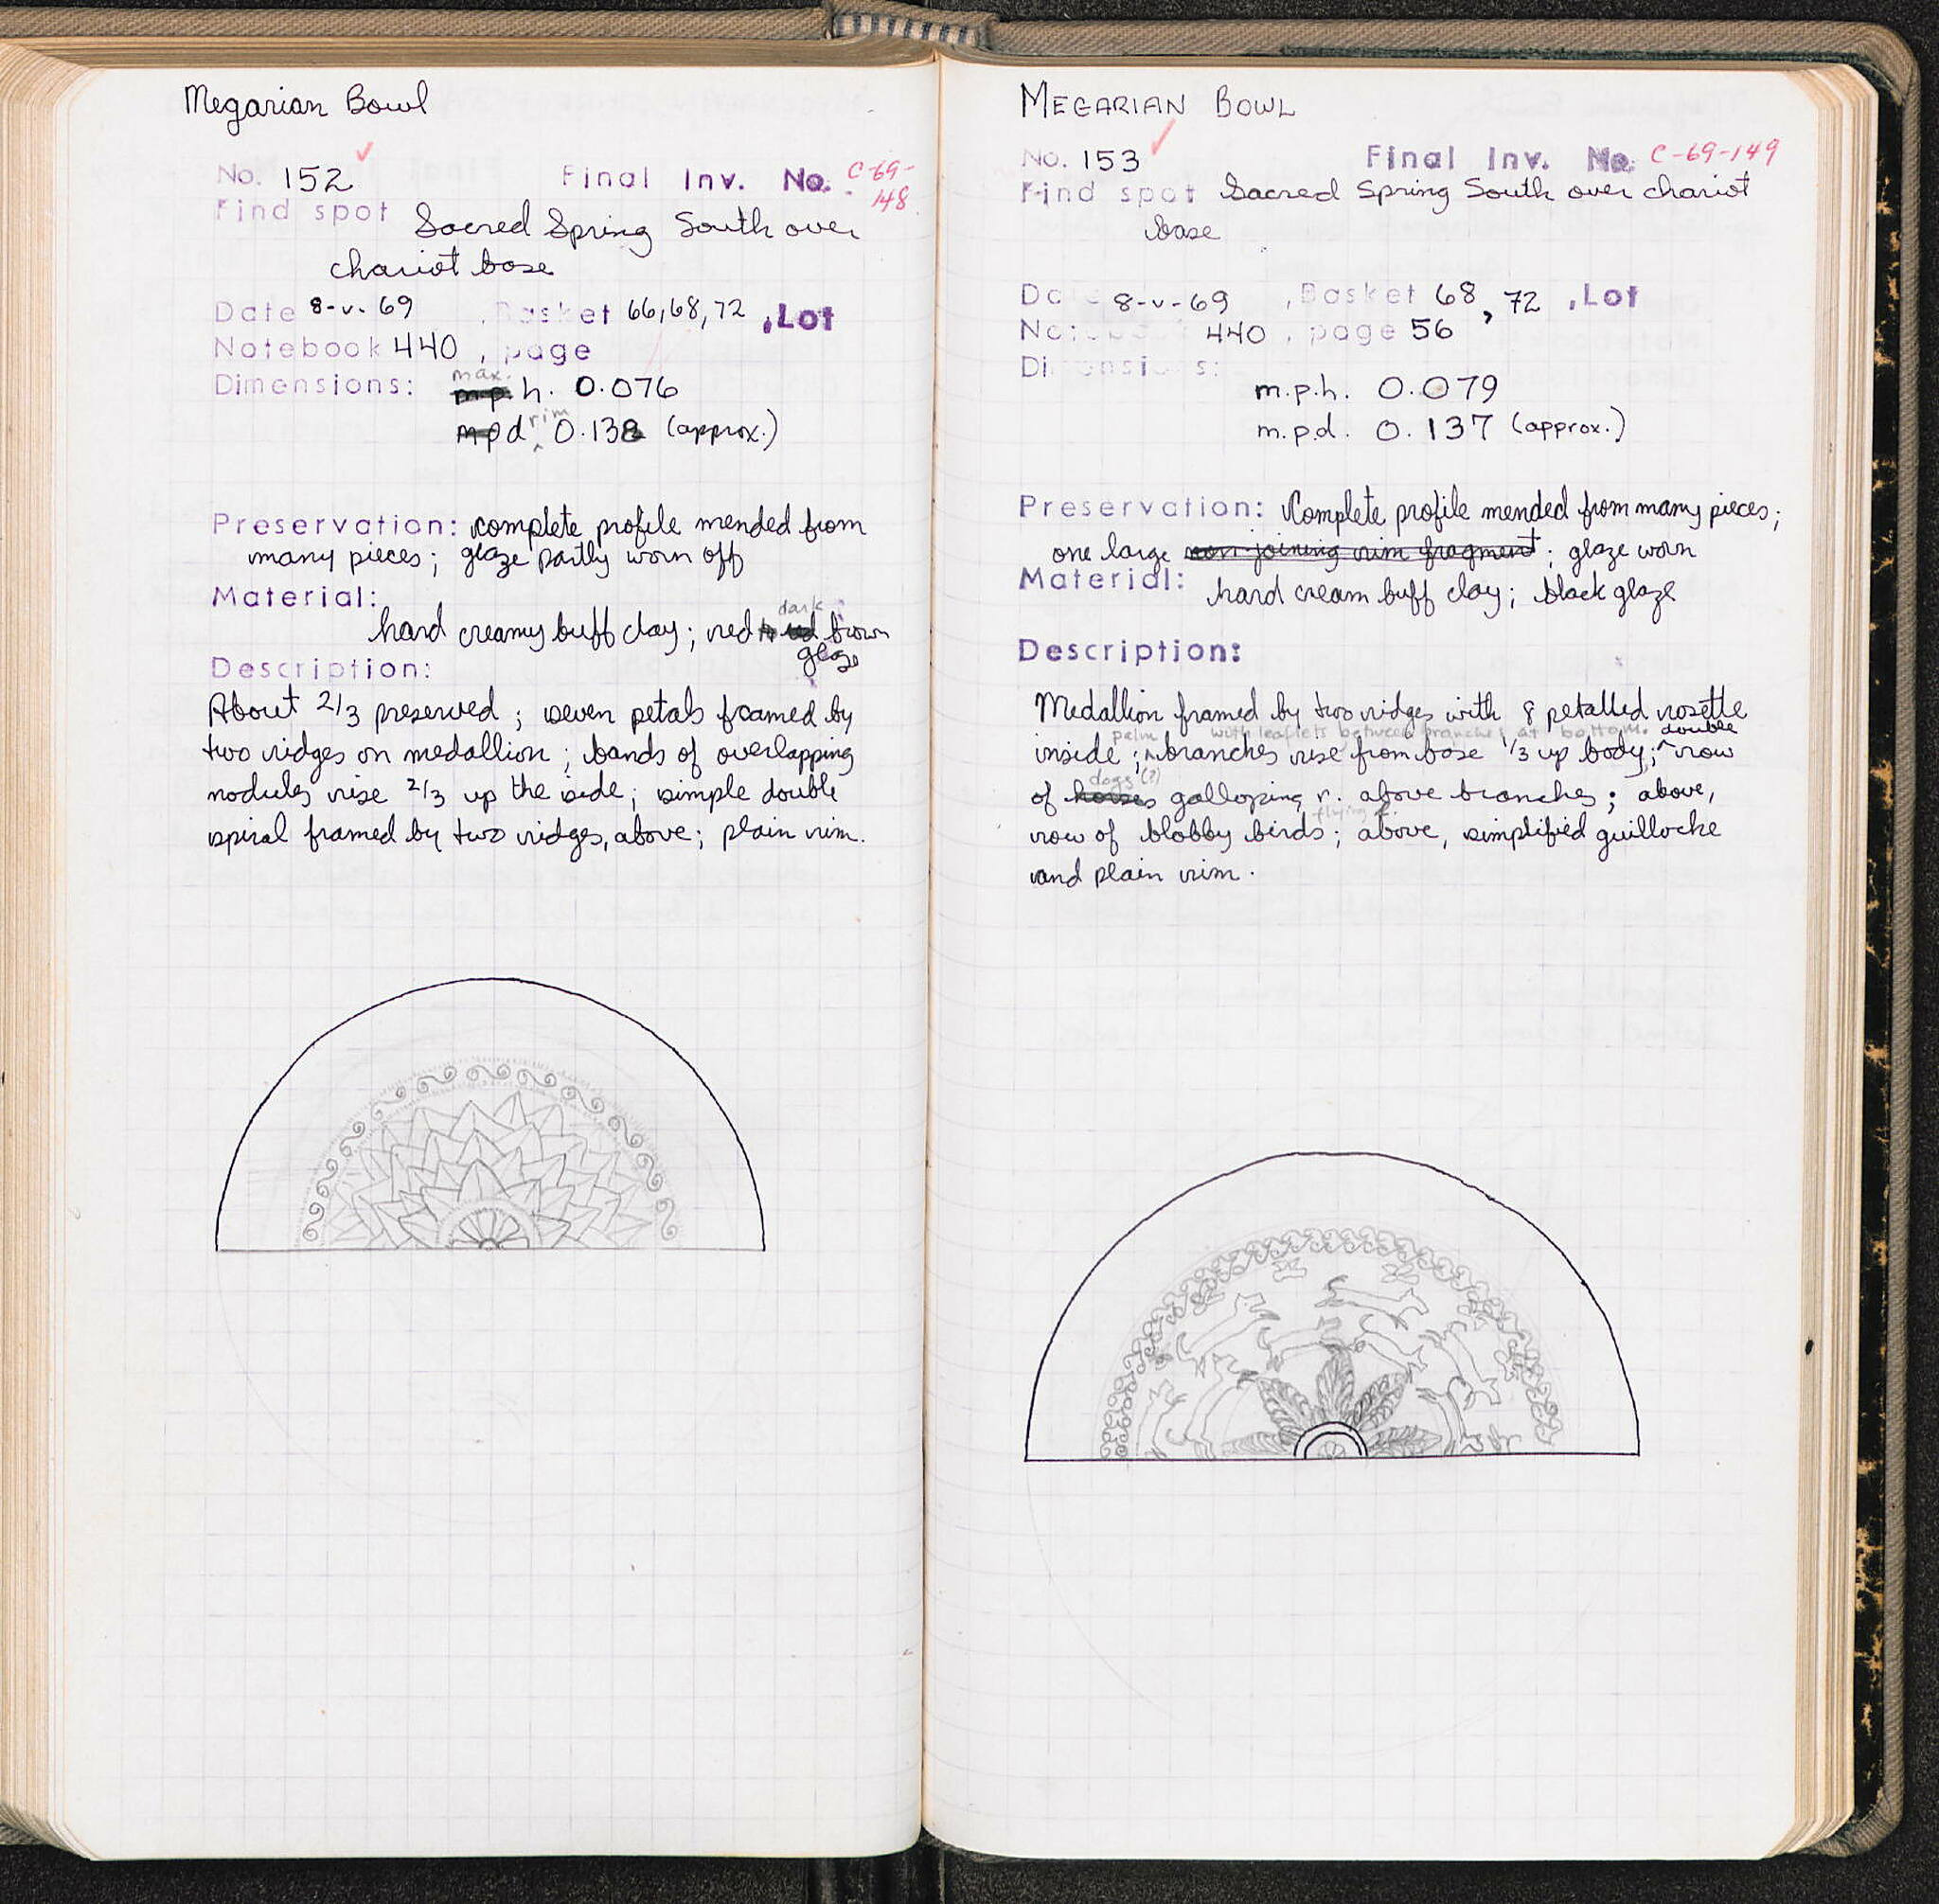 Megarian Bowl
No. 152 ✓ Final Inv. No. C-69-
148
Find spot Sacred Spring South over
chariot base
Date 8-v-69 , Basket 66,68,72 , Lot
Notebook 440 , page
Dimensions: max. h. 0.076
d rim 0.138 (approx.)
Preservation: complete profile mended from
many pieces; glaze partly worn off
Material:
hard creamy buff clay; red dark brown
glaze
Description:
About 2/3 preserved; seven petals framed by
two ridges on medallion; bands of overlapping
nodules rise 2/3 up the side; simple double
spiral framed by two ridges, above; plain rim.
MEGARIAN BOWL
No. 153 ✓ Final Inv. No. C-69-149
Find spot Sacred Spring South over chariot
base
Date 8-v-69 , Basket 68, 72 , Lot
Notebook 440 , page 56
Dimensions:
m.p.h. 0.079
m.p.d. 0.137 (approx.)
Preservation: Complete profile mended from many pieces;
one large non-joining rim fragment; glaze worn
Material: hard cream buff clay; black glaze
Description:
Medallion framed by two ridges with 8 petalled rosette
palm with leaflets between branches at bottom. double
inside; branches rise from base 1/3 up body; row
dogs (?)
of horses galloping r. above branches; above,
flying
row of blobby birds; above, simplified guilloche
and plain rim.